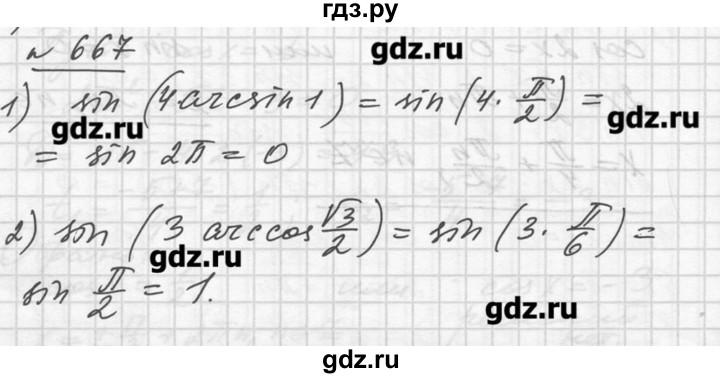 гдз.ру
№ 667
gdz.ru
1) sin (4 arcsin 1) = sin (4 · π/2) =
gdz.ru gdz.ru
= sin 2π = 0
2) sin (3 arccos √3/2) = sin (3 · π/6) =
gdz.ru
sin π/2 = 1.
gdz.ru
gdz.ru